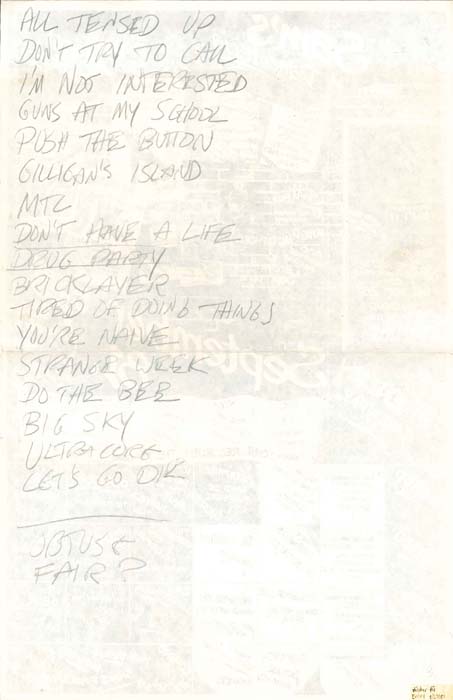 ALL TENSED UP
DON'T TRY TO CALL
I'M NOT INTERESTED
GUNS AT MY SCHOOL
PUSH THE BUTTON
GILLIGAN'S ISLAND
MTL
DON'T HAVE A LIFE
DRUG PARTY
BRICKLAYER
TIRED OF DOING THINGS
YOU'RE NAIVE
STRANGE WEEK
DO THE BEE
BIG SKY
ULTRACORE
LET'S GO DIE
FAIR?